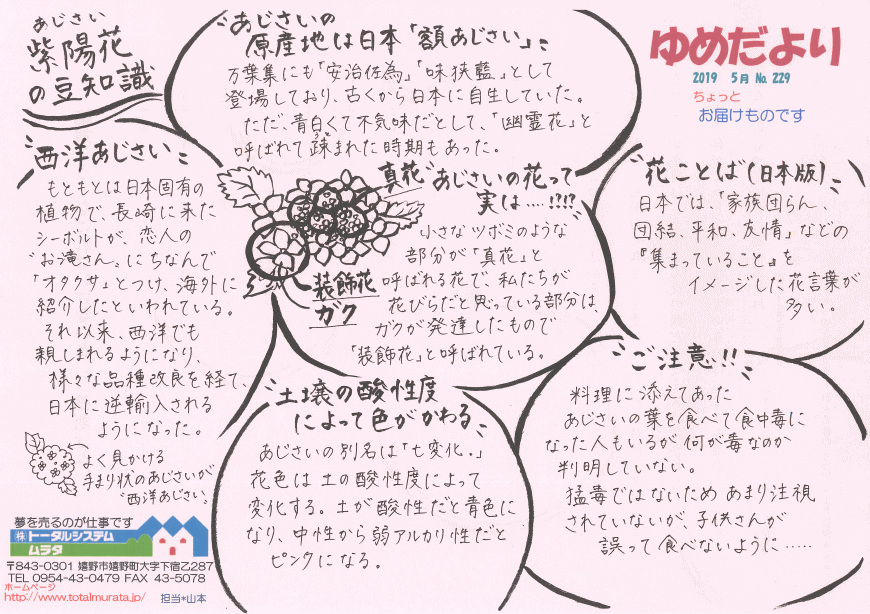 あじさい
紫陽花
の豆知識
あじさいの
原産地は日本「額あじさい」
万葉集にも「安治佐為」「味狭藍」として
登場しており、古くから日本に自生していた。
ただ、青白くて不気味だとして、「幽霊花」と
呼ばれて疎まれた時期もあった。
ゆめだより
2019 5月 No. 229
ちょっと
お届けものです
西洋あじさい
もともとは日本固有の
植物で、長崎に来た
シーボルトが、恋人の
“お滝さん„にちなんで
「オタクサ」とつけ、海外に
紹介したといわれている。
それ以来、西洋でも
親しまれるようになり、
様々な品種改良を経て、
日本に逆輸入される
ようになった。
よく見かける
手まり状のあじさいが
“西洋あじさい„
真花
装飾花
ガク
あじさいの花って
実は……!?!?
小さなツボミのような
部分が「真花」と
呼ばれる花で、私たちが
花びらだと思っている部分は、
ガクが発達したもので
「装飾花」と呼ばれている。
花ことば(日本版)
日本では、「家族団らん、
団結、平和、友情」などの
『集まっていること』を
イメージした花言葉が
多い。
土壌の酸性度
によって色がかわる
あじさいの別名は「七変化.」
花色は土の酸性度によって
変化する。土が酸性だと青色に
なり、中性から弱アルカリ性だと
ピンクになる。
ご注意!!
料理に添えてあった
あじさいの葉を食べて食中毒に
なった人もいるが何が毒なのか
判明していない。
猛毒ではないためあまり注視
されていないが、子供さんが
誤って食べないように……
夢を売るのが仕事です
株 トータルシステム
ムラタ
〒843-0301 嬉野市嬉野町大字下宿乙287
TEL 0954-43-0479 FAX 43-5078
ホームページ
http://www.totalmurata.jp/ 担当*山本